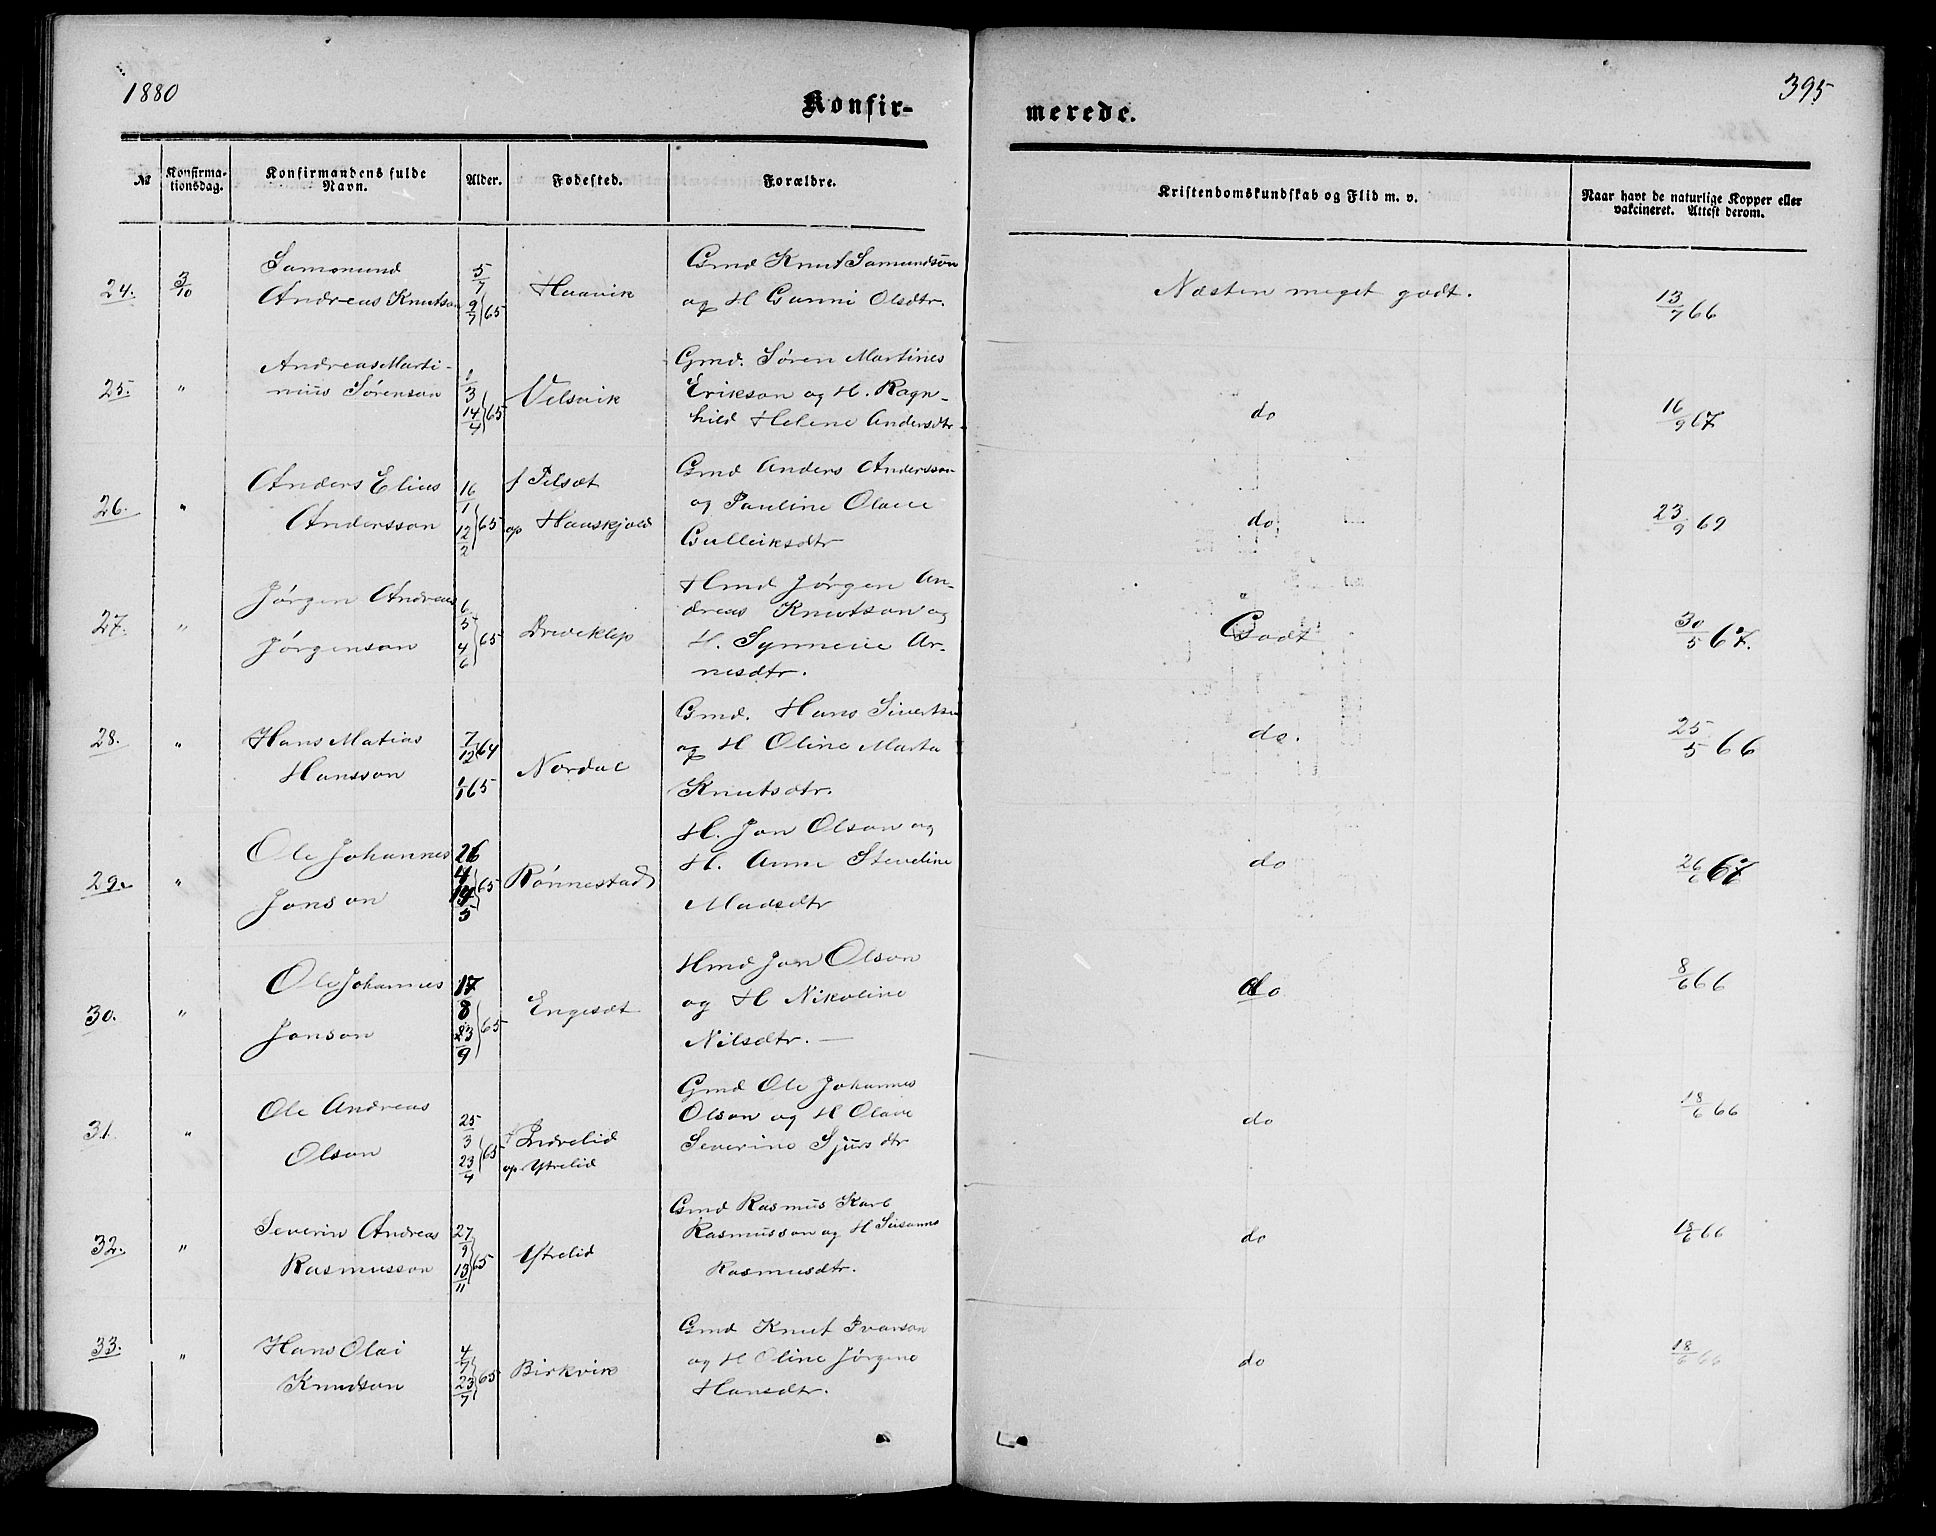 1880
395
Konfir-
merede.
№
Konfirma-
tionsdag.
Konfirmandens fulde
Navn.
Alder.
Fødested.
Forældre.
Kristendomskundskab og Flid m. v.
Naar havt de naturlige Kopper eller
vakcineret. Attest derom.
24. 3/10
Samsmund
Andreas Knutson
5/7 9/7 65
Haavik
Gmd Knut Samundsøn
og H Gunni Olsdtr.
Næsten meget godt.
13/7 66
25. "
Andreas Marti-
nius Sørenson
1/3 14/4 65
Velsvik
Gmd. Søren Martines
Erikson og H. Ragn-
hild Helene Andersdtr.
do
16/9 67
26. "
Anders Elias
Andersson
16/1 12/2 65
f Pilsæt
op Haaskjold
Gmd Anders Andersson
og Pauline Olave
Gulleiksdtr
do
23/9 69
27. "
Jørgen Andreas
Jørgenson
6/5 4/6 65
Driveklep
Hmd Jørgen An-
dreas Knutson og
H. Synneve Ar-
nesdtr.
Godt
30/5 67.
28. "
Hans Matias
Hansson
7/12 64
1/1 65
Nordal
Gmd. Hans Sivertsen
og H Oline Marta
Knutsdtr.
do.
25/5 66
29. "
Ole Johannes
Jonson
26/4 14/5 65
Rønnestad
H. Jon Olson og
H. Anne Steveline
Madsdtr
do
26/6 67
30. "
Ole Johannes
Jonson
17/8 23/9 65
Engesæt
Hmd Jon Olson
og H Nikoline
Nilsdtr. —
do
8/6 66
31. "
Ole Andreas
Olson
25/3 23/4 65
f Indrelid
op Ytrelid
Gmd Ole Johannes
Olson og H Olave
Severine Sjursdtr
do
18/6 66
32. "
Severin Andreas
Rasmusson
27/9 13/11 65
Ytrelid
Gmd Rasmus Karl
Rasmusson og H Susanne
Rasmusdtr.
do
18/6 66
33. "
Hans Olai
Knudson
4/7 23/7 65
Birkvik
Gmd Knut Ivarson
og H Oline Jørgine
Hansdtr.
do
18/6 66